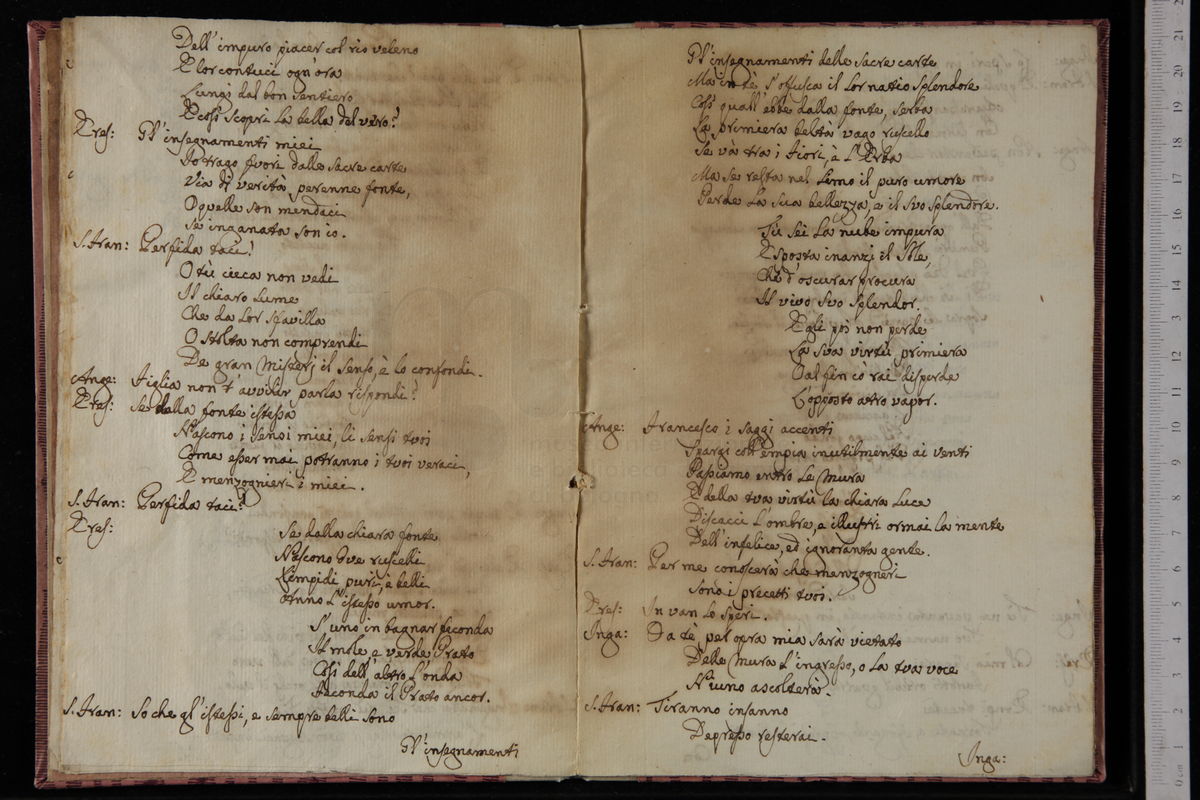 Dell'impuro piacer col rio veleno
E lor contuci ogn'ora
Lungi dal bon sentiero
E così scopri la bella del vero?
Eres: Gl'insegnamenti miei
Io trago fuori dalle sacre carte
Via di verità, perenne fonte,
O quelle son mendaci
Se inganata son io.
S. Fran: Perfida taci!
O tù cieca non vedi
Il chiaro lume
Che da lor sfavilla
O stolta non comprendi
De gran Misterj il senso, è lo confondi.
Ange: Figlia non t'avvilir parla rispondi?
Eres: Se dalla fonte istessa
Nascono i sensi miei, li sensi tuoi
Come esser mai potranno i tuoi veraci,
E menzognieri i miei.
S. Fran: Perfida taci?
Eres:
Se dalla chiara fonte
Nascono due ruscelli
Limpidi puri, è belli
Anno l'istesso umor.
S'uno in bagnar feconda
Il mole e verde Prato
Così dell'altro l'onda
Feconda il Prato ancor.
S. Fran: So che gl'istessi, e sempre belli sono
Gl'insegnamenti
Gl'insegnamenti delle sacre carte
Ma in tè s'offusca il lor natio splendore
Così quall'ebbe dalla fonte, serba
La primiera beltà vago ruscello
Se và tra i fiori, è l'Erba
Ma se resta nel limo il puro umore
Perde la sua bellezza, e il suo splendore.
Tù sei la nube impura
Esposta inanzi il Sole,
Che d'oscurar procura
Il vivo suo splendor.
Egli poi non perde
La sua virtù, primiera
Dal fin co' rai disperde
L'opposto atro vapor.
Ange: Francesco i saggi accenti
Spargi coll'empia inutilmente ai venti
Passiamo entro le mura
E della tua virtù la chiara luce
Discacci l'ombre, e illustri ormai la mente
Dell'infelice, ed ignoranta gente.
S. Fran: Per me conoscerà che menzogneri
Sono i precetti tuoi.
Eres: In van lo speri.
Inga: Da tè per opra mia sarà vietato
Delle mura l'ingresso, o la tua voce
Niuno ascolterà.
S. Fran: Tiranno insanno
Depresso resterai.
Inga: